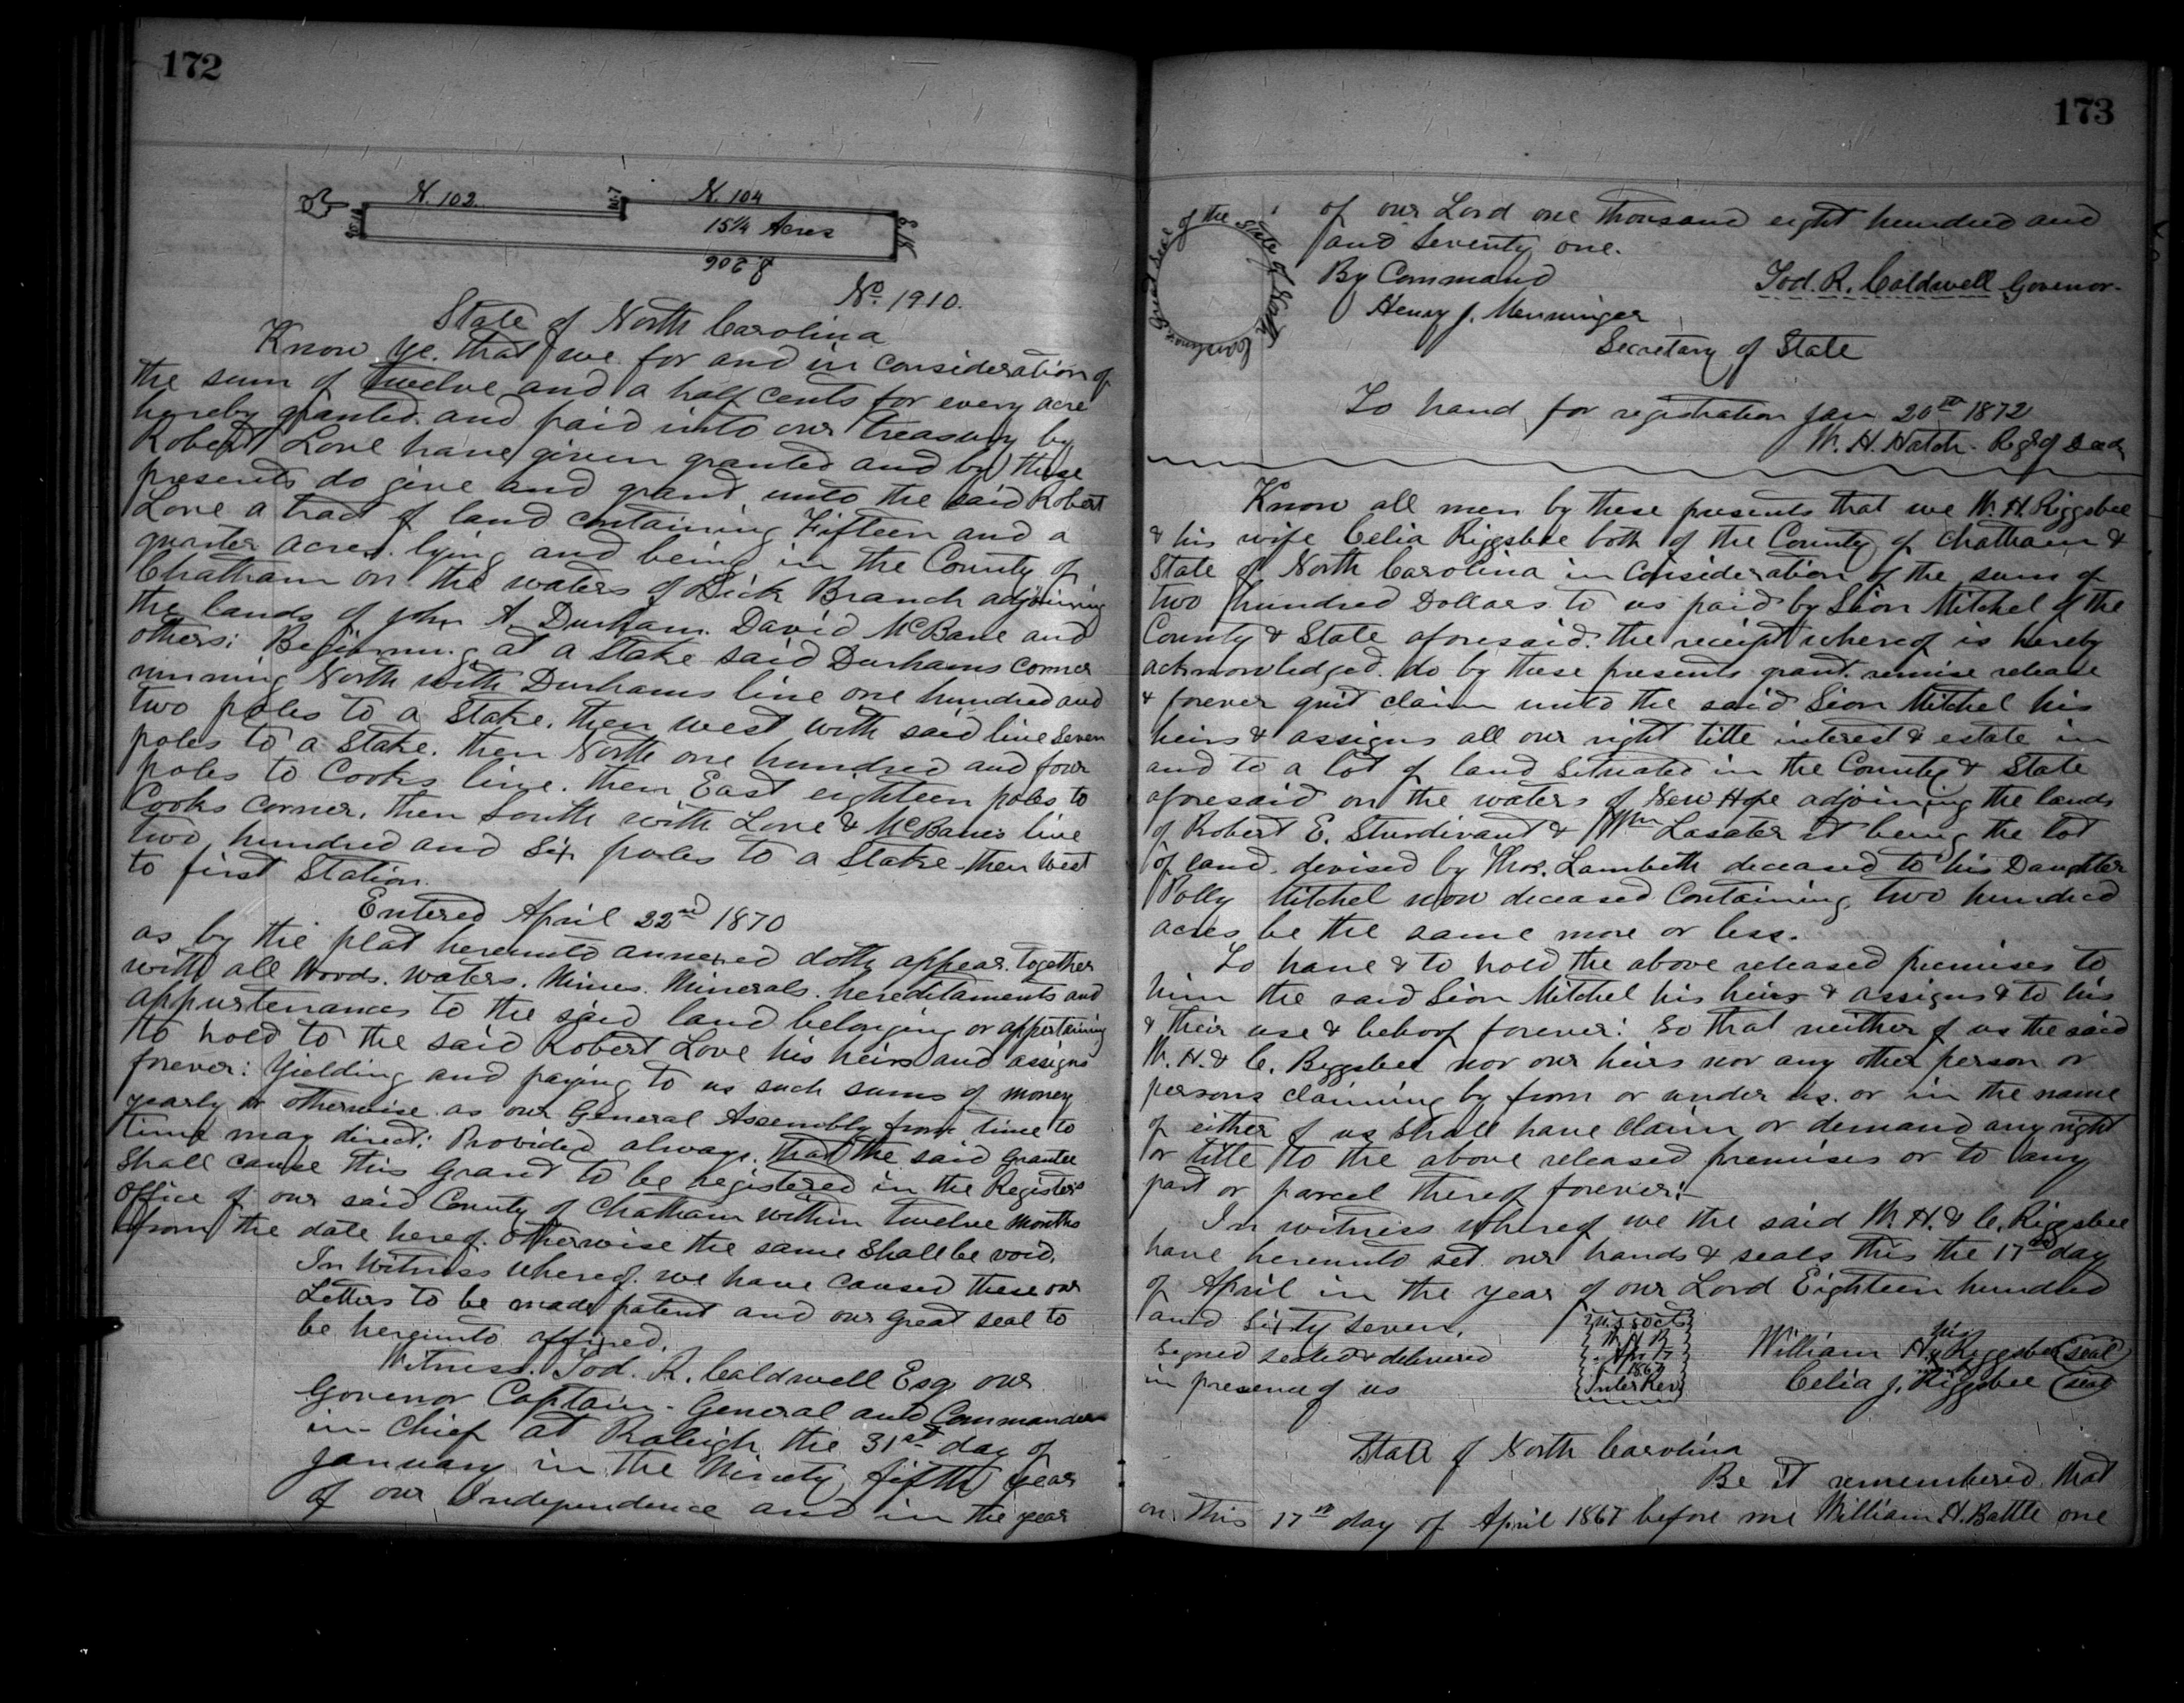 172
N. 102
W. 7
N. 104
15 1/4 Acres
E. 18
S 206
W. 11
No. 1910.
State of North Carolina
Know ye that we for and in consideration of
the sum of twelve and a half cents for every acre
hereby granted and paid into our treasury by
Robert Love have given granted and by these
presents do give and grant unto the said Robert
Love a tract of land containing Fifteen and a
quarter acres lying and being in the County of
Chatham on the waters of Dick Branch adjoining
the lands of John A. Durham. David McBane and
others: Beginning at a Stake said Durhams corner
running North with Durhams line one hundred and
two poles to a Stake. then west with said line Seven
poles to a Stake. then North one hundred and four
poles to Cooks line. then East eighteen poles to
Cooks corner, then South with Love & McBanes line
two hundred and Six poles to a Stake then West
to first Station.
Entered April 22nd 1870
as by the plat hereunto annexed doth appear. together
with all Woods. Waters. Mines. Minerals. hereditaments and
appurtenances to the said land belonging or appertaining
to hold to the said Robert Love his heirs and assigns
forever: Yielding and paying to us such sums of money
yearly or otherwise as our General Assembly from time to
time may direct: Provided always. that the said Grantee
Shall cause this Grant to be registered in the Registers
office of our said County of Chatham within twelve months
from the date hereof. otherwise the same Shall be void.
In Witness whereof. we have caused these our
Letters to be made patent and our great seal to
be hereunto affixed.
Witness. Tod. R. Caldwell Esq our
Govenor Captain-General and Commander
in-Chief at Raleigh the 31st day of
January in the Ninety fifth year
of our Independence and in the year
173
of our Lord one thousand eight hundred and
and Seventy one.
Great Seal of the State of North Carolina
By Command
Tod. R. Caldwell Govenor.
Henry J. Menninger
Secretary of State
To hand for registration Jan 20th 1872
W. H. Hatch Reg of Deeds
Know all men by these presents that we W. H. Riggsbee
& his wife Celia Riggsbee both of the County of Chatham &
State of North Carolina in Consideration of the sum of
two hundred Dollars to us paid by Sion Mitchel of the
County & State aforesaid. the receipt whereof is hereby
acknowledged. do by these presents grant. remise release
& forever quit claim unto the said Sion Mitchel his
heirs & assigns all our right title interest & estate in
and to a lot of land situated in the County & State
aforesaid on the waters of New Hope adjoining the lands
of Robert E. Sturdivant & Wm Lasater it being the lot
of land devised by Thos. Lambeth deceased to his Daughter
Polly Mitchel now deceased Containing two hundred
acres be the same more or less.
To have & to hold the above released premises to
him the said Sion Mitchel his heirs & assigns & to his
& their use & behoof forever: So that neither of us the said
W. H. & C. Riggsbee nor our heirs nor any other person or
persons claiming by from or under us. or in the name
of either of us shall have claim or demand any right
or title to the above released premises or to any
part or parcel thereof forever:-
In witness whereof we the said W. H. & C. Riggsbee
have hereunto set our hands & seals this the 17th day
of April in the year of our Lord Eighteen hundred
and Sixty Seven.
Signed sealed & delivered
in presence of us
50 cts
W H R
Apr 17
1867
Inter Rev
his
William H x Riggsbee (seal)
mark
Celia J. Riggsbee (seal)
State of North Carolina
Be it remembered that
on this 17th day of April 1867 before me William H. Battle one